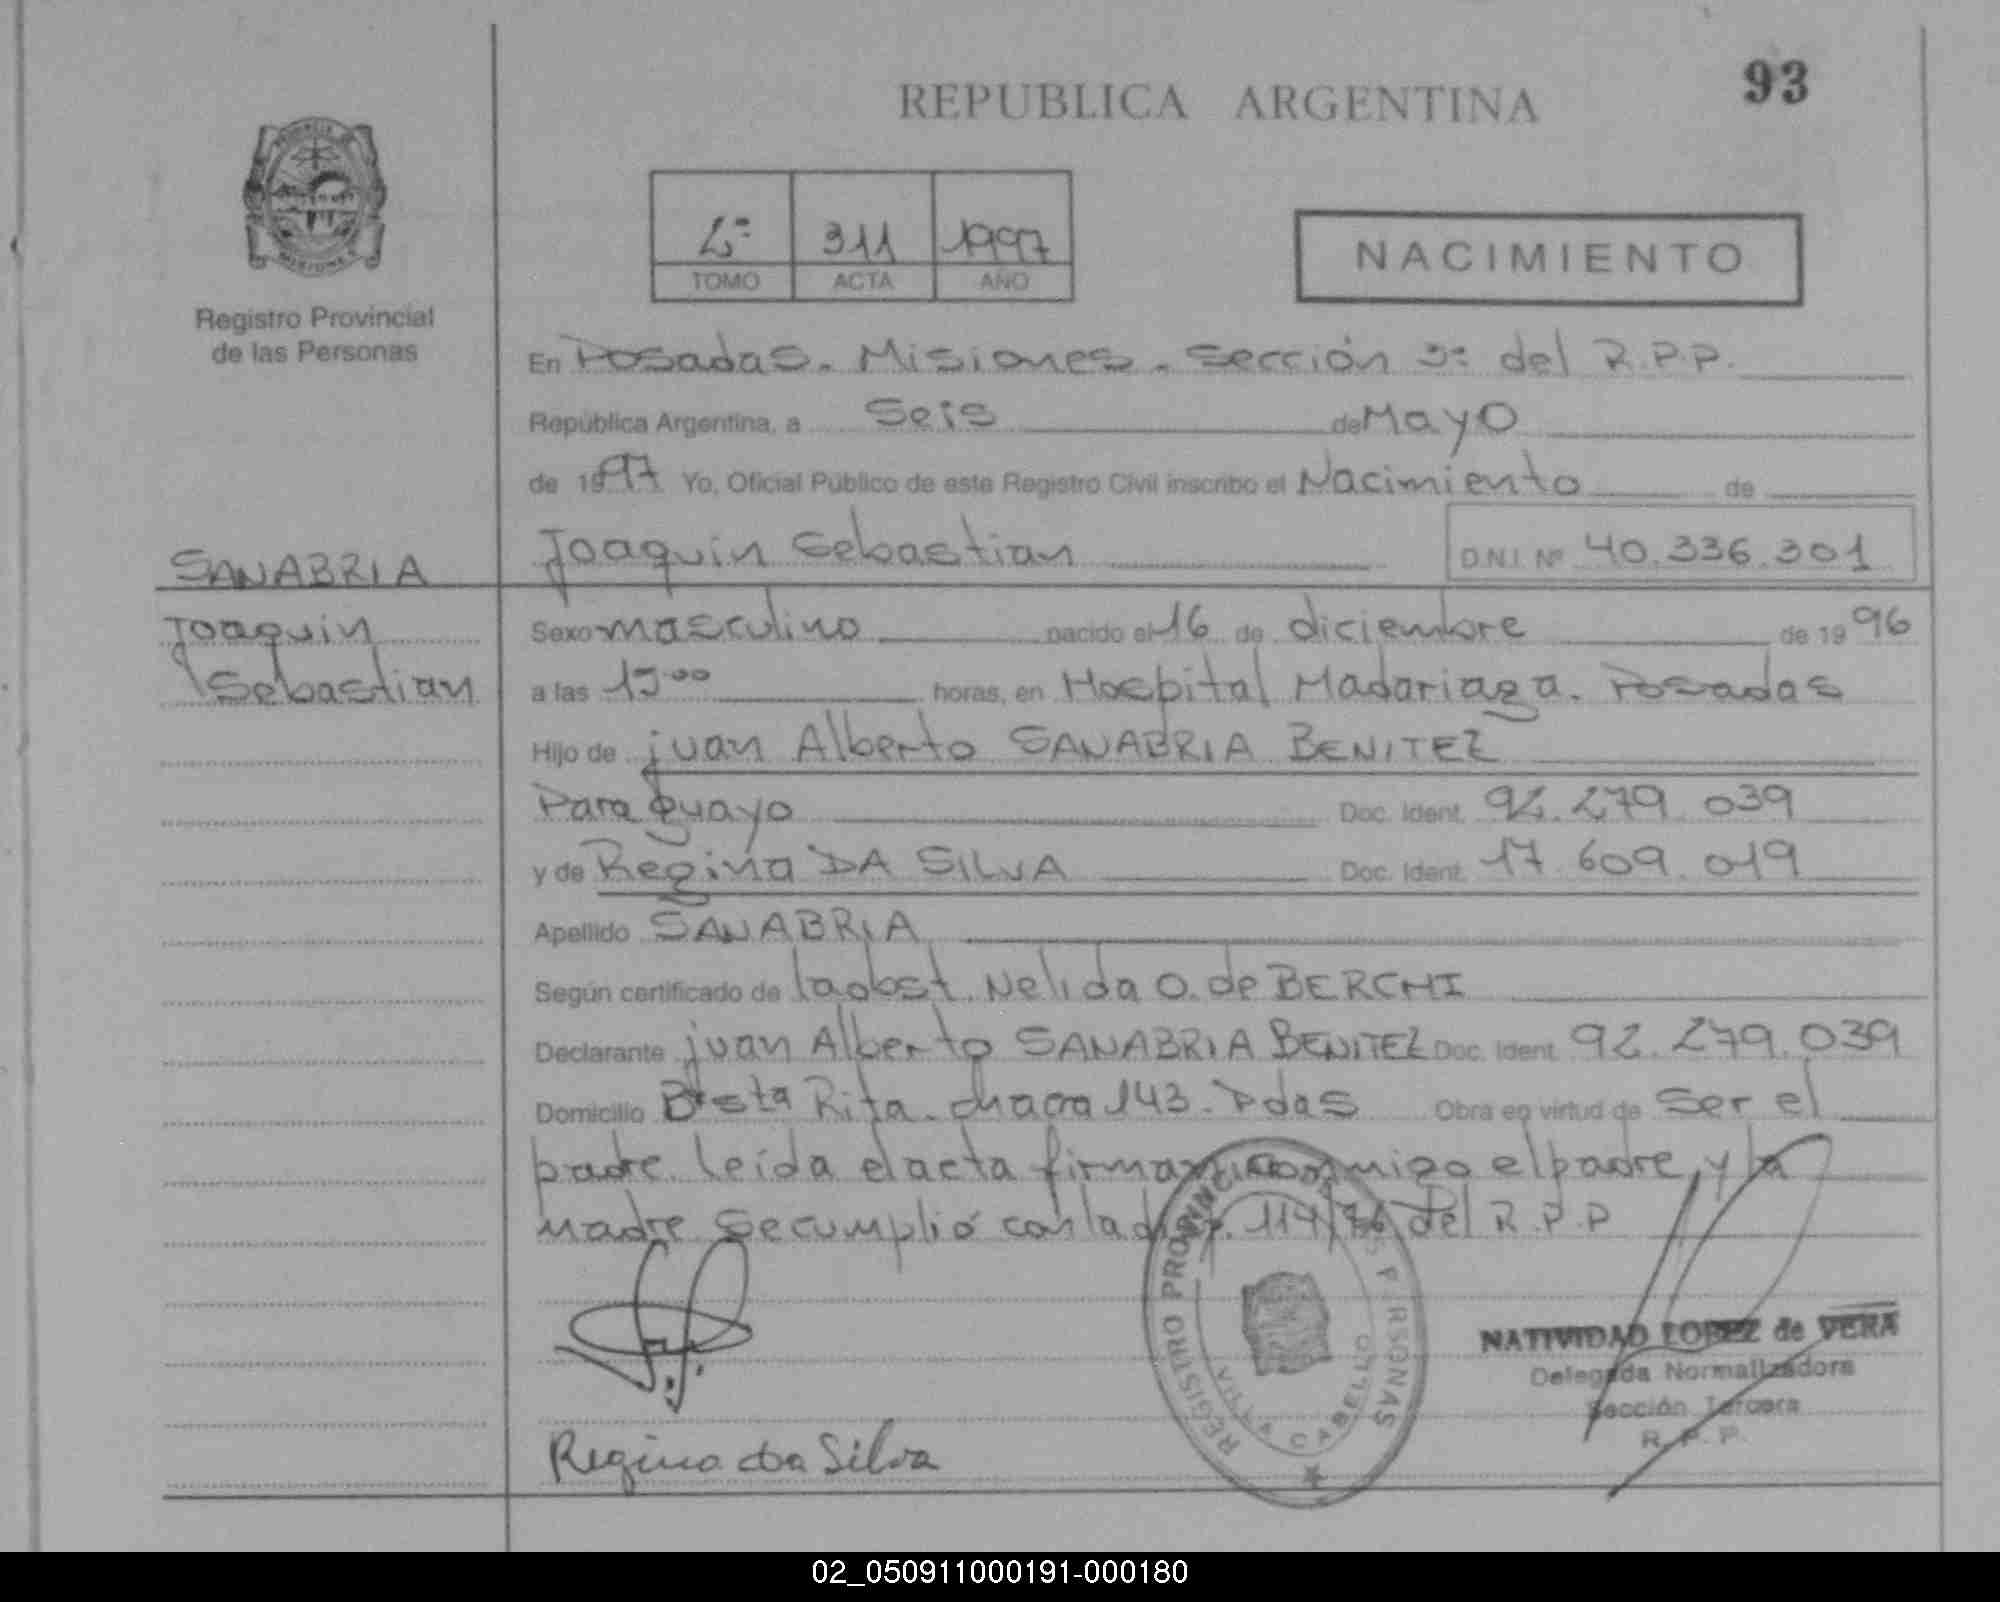 93
REPUBLICA ARGENTINA
2º 311 1997
TOMO ACTA AÑO
NACIMIENTO
Registro Provincial
de las Personas
En Posadas. Misiones. Sección 3º del R.P.P.
República Argentina, a Seis de Mayo
de 1997 Yo, Oficial Público de este Registro Civil inscribo el Nacimiento de
Joaquin Sebastian D.N.I. Nº 40.336.301
SANABRIA
Joaquin
Sebastian
Sexo masculino nacido el 16 de diciembre de 1996
a las 15⁰⁰ horas, en Hospital Madariaga. Posadas
Hijo de juan Alberto SANABRIA BENITEZ
Paraguayo Doc. Ident. 92.279.039
y de Regina DA SILVA Doc. Ident. 17.609.019
Apellido SANABRIA
Según certificado de la obst. Nelida O. de BERCHI
Declarante juan Alberto SANABRIA BENITEZ Doc. Ident. 92.279.039
Domicilio Bº sta Rita. chacra 143. Pdas Obra en virtud de Ser el
padre. leída el acta firman conmigo el padre y la
madre se cumplió con la disp. 114/96 del R.P.P
REGISTRO PROVINCIAL DE LAS PERSONAS
VILLA CABELLO
NATIVIDAD LOPEZ de VERA
Delegada Normalizadora
Sección Tercera
R.P.P.
Regina da Silva
02_050911000191-000180